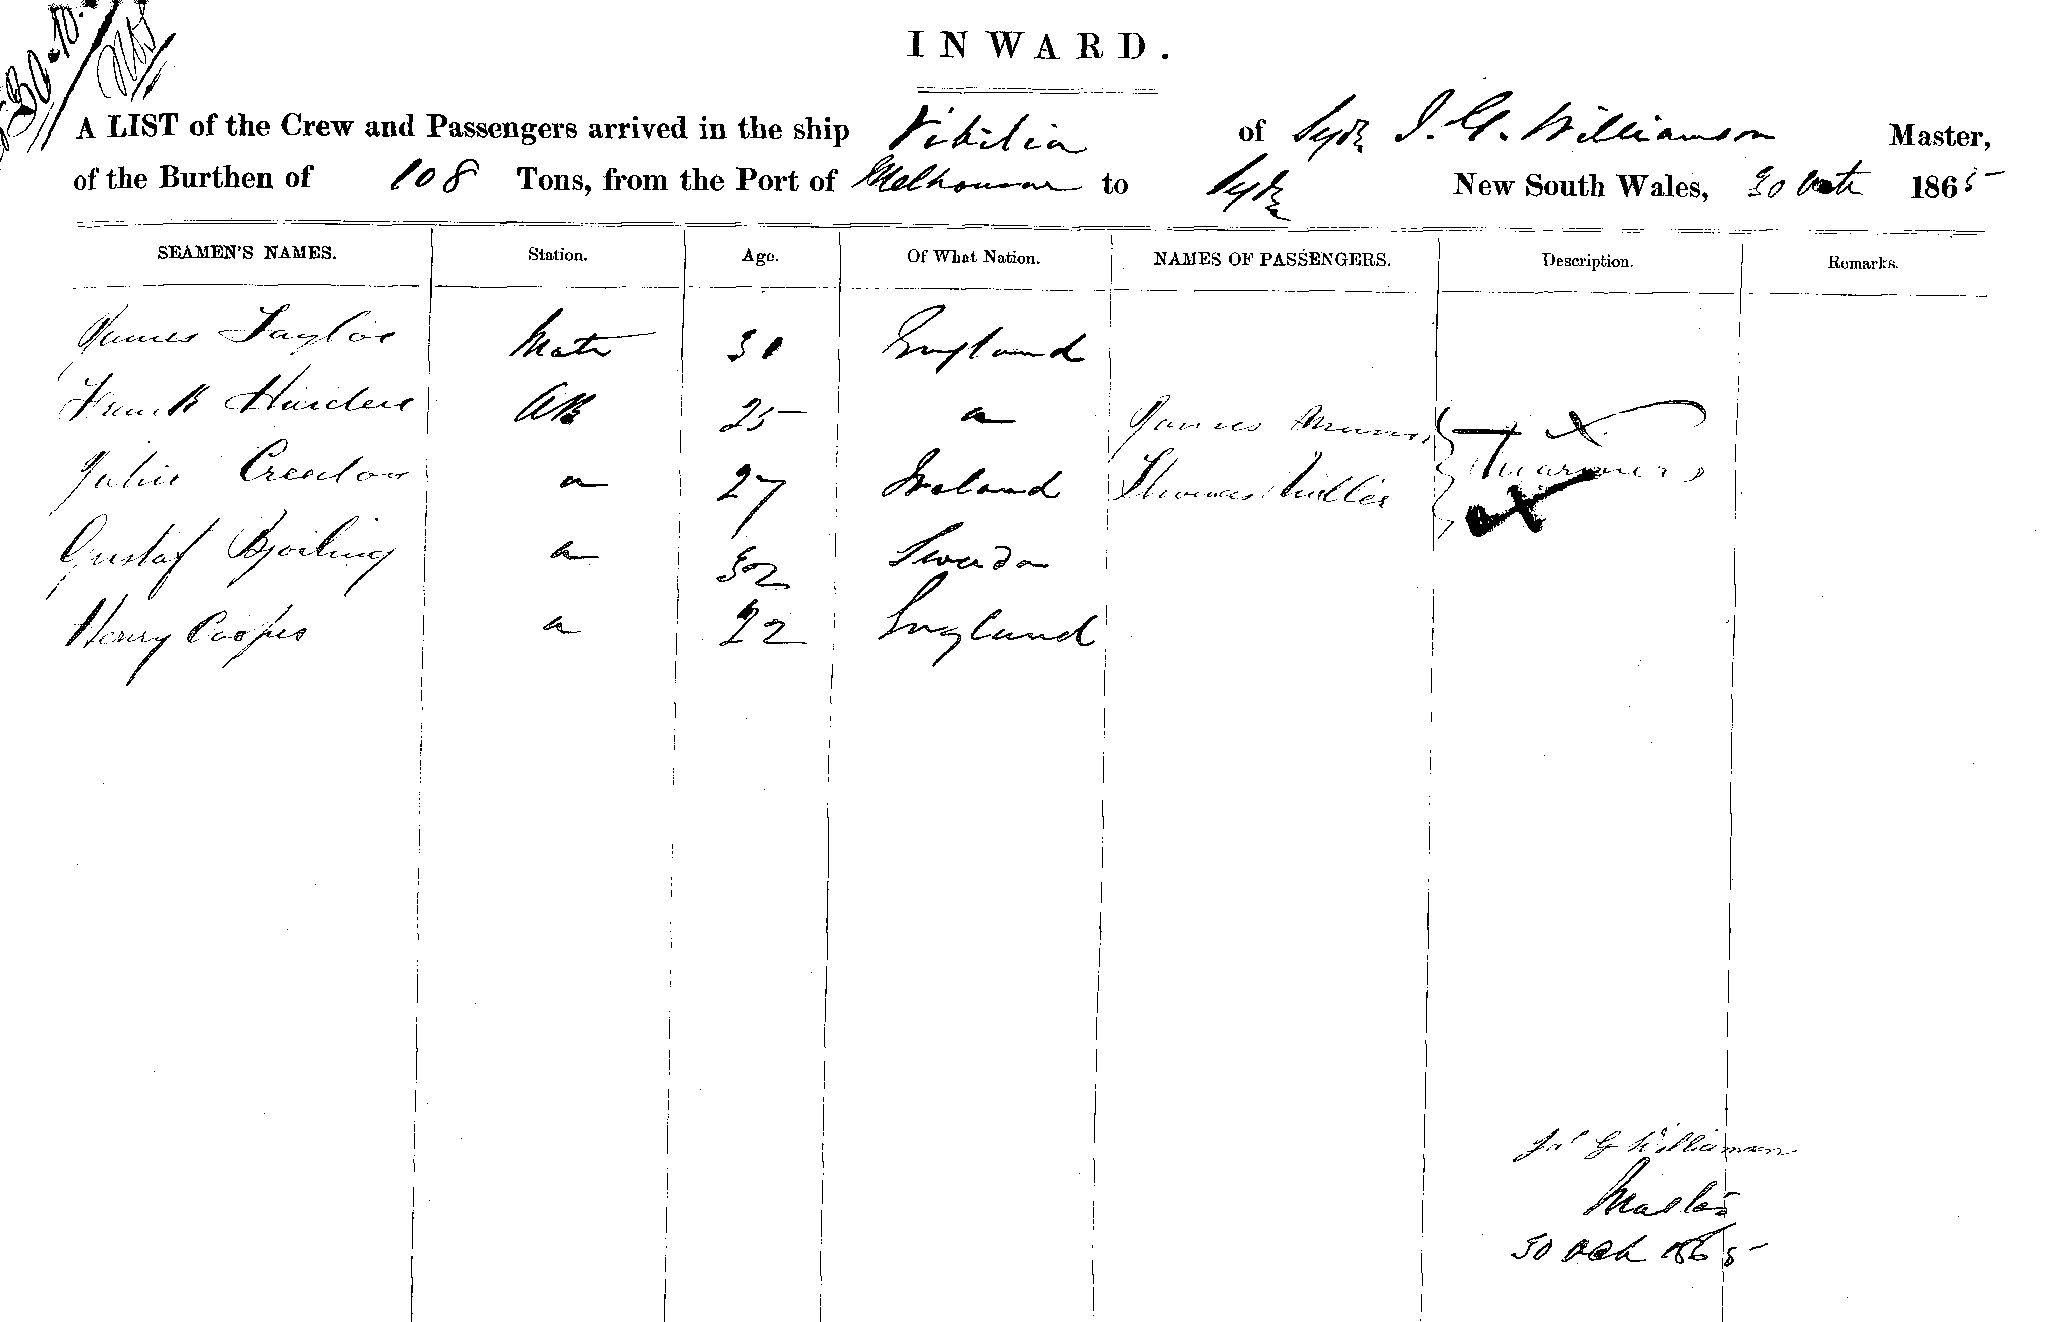 30.10
INWARD.
A LIST of the Crew and Passengers arrived in the ship Vibilia of Syd. J. G. Williamson Master,
of the Burthen of 108 Tons, from the Port of Melbourne to Syd. New South Wales, 30 Octr 1865
SEAMEN'S NAMES. Station. Age. Of What Nation. NAMES OF PASSENGERS. Description. Remarks.
James Taylor Mate 30 England
Frank AB 25 " James
John Creedon " 27 Ireland Thomas Miller mariners
Gustaf " 32 Sweden
Henry Cooper " 22 England
Jno G Williamson
Master
30 Oct 1865